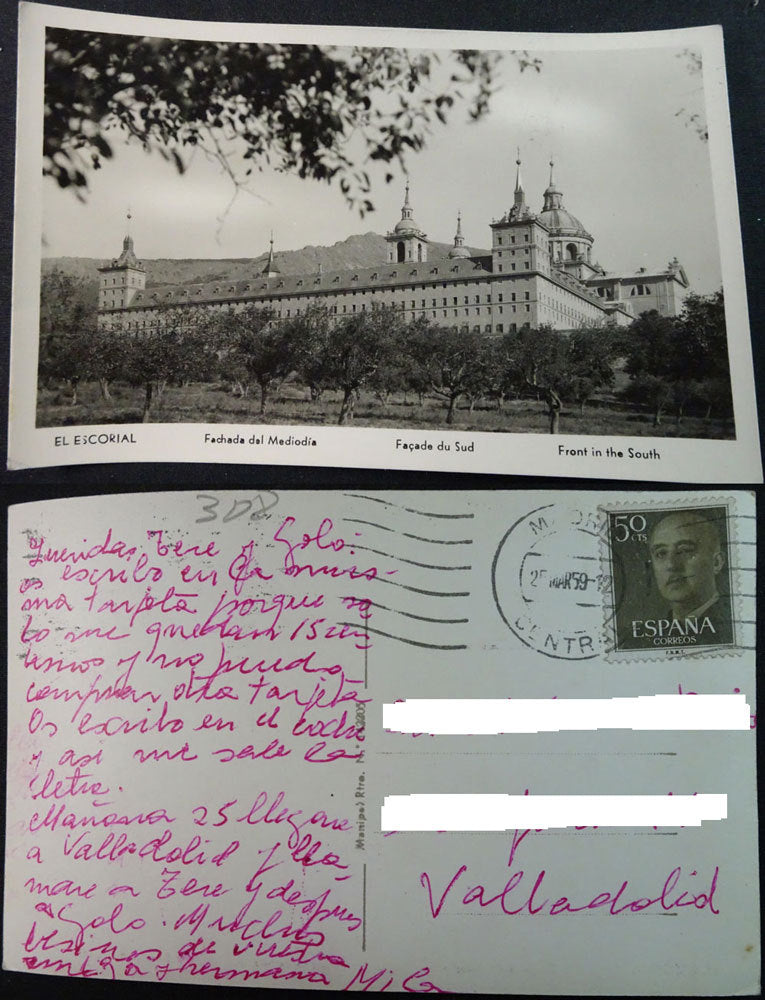 EL ESCORIAL
Fachada del Mediodía
Façade du Sud
Front in the South
308
Queridas Tere y Golo:
os escribo en la mis-
ma tarjeta porque so
lo me quedan 15 cén
timos y no puedo
comprar otra tarjeta
Os escribo en el coche
y así me sale la
letra.
Mañana 25 llegare
a Valladolid y lla
mare a Tere y despues
a Golo. Muchos
besinos de vuestra
amiga y hermana Mila
MADRI
25 MAR 59-12
CENTR
50
CTS
ESPAÑA
CORREOS
F.N.M.T.
Manipel Rtro. N.º
Valladolid